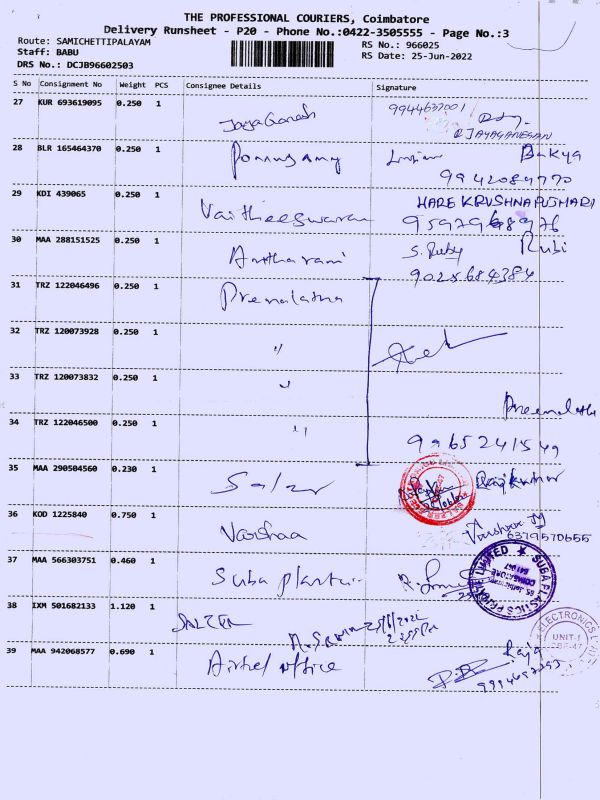 THE PROFESSIONAL COURIERS, Coimbatore
Delivery Runsheet - P20 - Phone No.:0422-3505555 - Page No.:3
Route: SAMICHETTIPALAYAM
RS No.: 966025
Staff: BABU
RS Date: 25-Jun-2022
DRS No.: DCJB96602503
S No Consignment No Weight PCS Consignee Details Signature
27 KUR 693619095 0.250 1 JayaGanesh 9944637001
JAYAGANESAN
28 BLR 165464370 0.250 1 Ponnusamy Bakya
29 KDI 439065 0.250 1 Vaitheeswaran HARE KRUSHNA PUJHARI
30 MAA 288151525 0.250 1 S. Ruby Rubi
9025684384
31 TRZ 122046496 0.250 1 Premalatha
32 TRZ 120073928 0.250 1 "
33 TRZ 120073832 0.250 1 "
Premalatha
34 TRZ 122046500 0.250 1 "
9965241549
35 MAA 290504560 0.230 1 Salzer Rajkumar
36 KOD 1225840 0.750 1 Varshaa
6379570655
37 MAA 566303751 0.460 1 Suba
SUBA PLASTICS PRIVATE LIMITED
COIMBATORE
38 IXM 501682133 1.120 1 SALZER 25/6/2022
ELECTRONICS
UNIT-1
CBE-47
39 MAA 942068577 0.690 1 Airtel office Raja